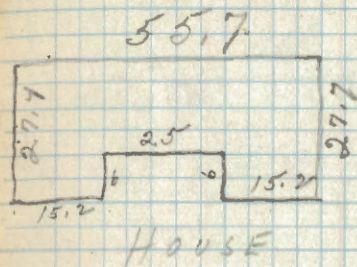 55.7
27.7
27.7
25
6
6
15.2
15.2
HOUSE